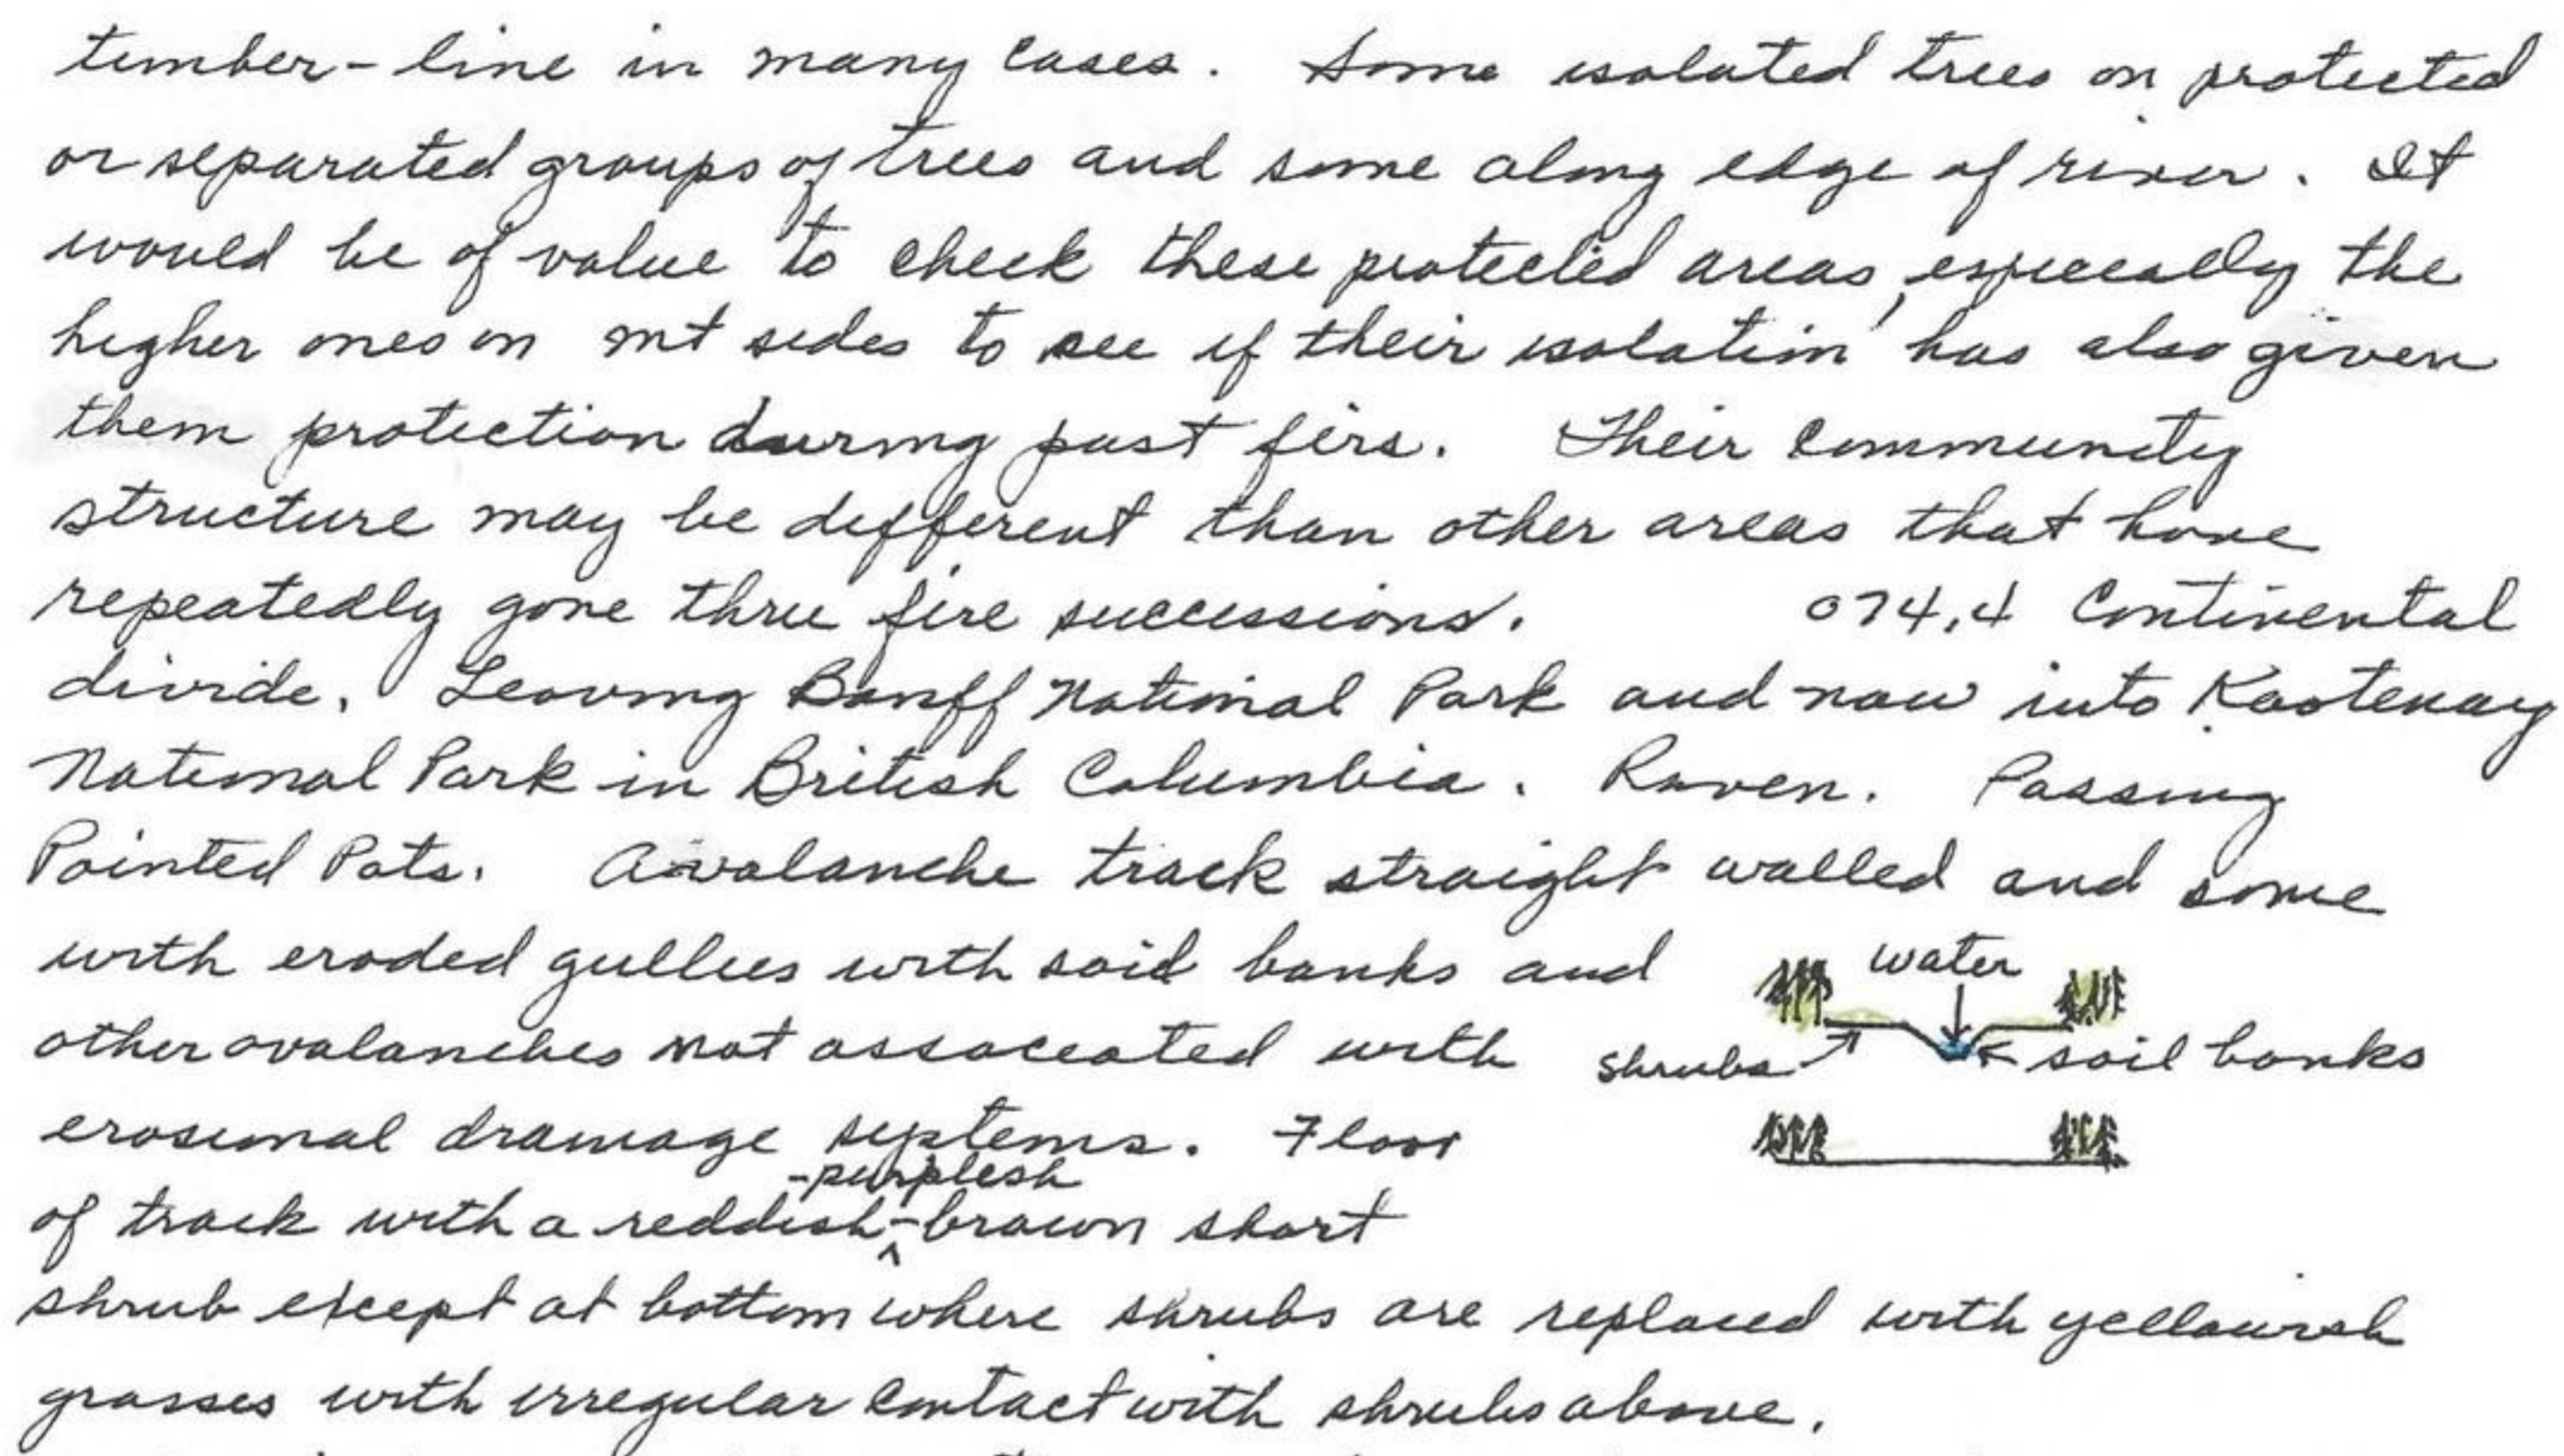 timber-line in many cases. Some isolated trees on protected
or separated groups of trees and some along edge of river. It
would be of value to check these protected areas, especially the
higher ones on mt sides to see if their isolation has also given
them protection during past firs. Their community
structure may be different than other areas that have
repeatedly gone thru fire successions. 074.4 Continental
divide. Leaving Banff National Park and now into Kootenay
National Park in British Columbia. Raven. Passing
Pointed Pots. Avalanche track straight walled and some
with eroded gullies with soil banks and
water
other avalanches not associated with
shrubs
soil banks
erosional drainage systems. Floor
-purplish
of track with a reddish-^brown short
shrub except at bottom where shrubs are replaced with yellowish
grasses with irregular contact with shrubs above.